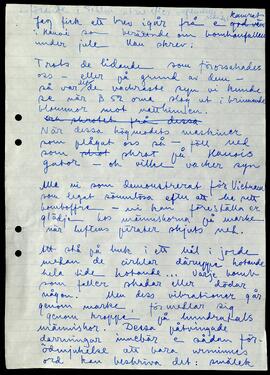 Jag fick ett brev igår från e
i Hanoi som berättade om bombanfallen
under jule Han skrev:
Trots de lidande som förorsakades
oss – eller på grund av dem –
så var de vackraste syn vi kunde
se när B 52 orna slog ut i brinnande
blommor mot natthimlen.
När dessa högmodets maskiner
som plågat oss så – föll ned
som skrot på Hanois
gator – oh vilken vacker syn
Men vi som demonstrerat för Vietnam
som legat sömnlösa efter att ha sett
bomboffer vi kan föreställa er
glädje hos människorna på marken
när luftens pirater skjuts ned.
Att stå på huk i ett hål i jorden
medan de cirklar däruppe hotande
hela tiden hotande... Varje bomb
som faller skadar eller dödar
någon. Men dess vibrationer går
genom marken förmedlar sig
genom kroppen på hundratals
människor. Dessa påtvingade
darrningar innebär en sådan för-
ödmjukelse att bara
kan beskriva det: smälek